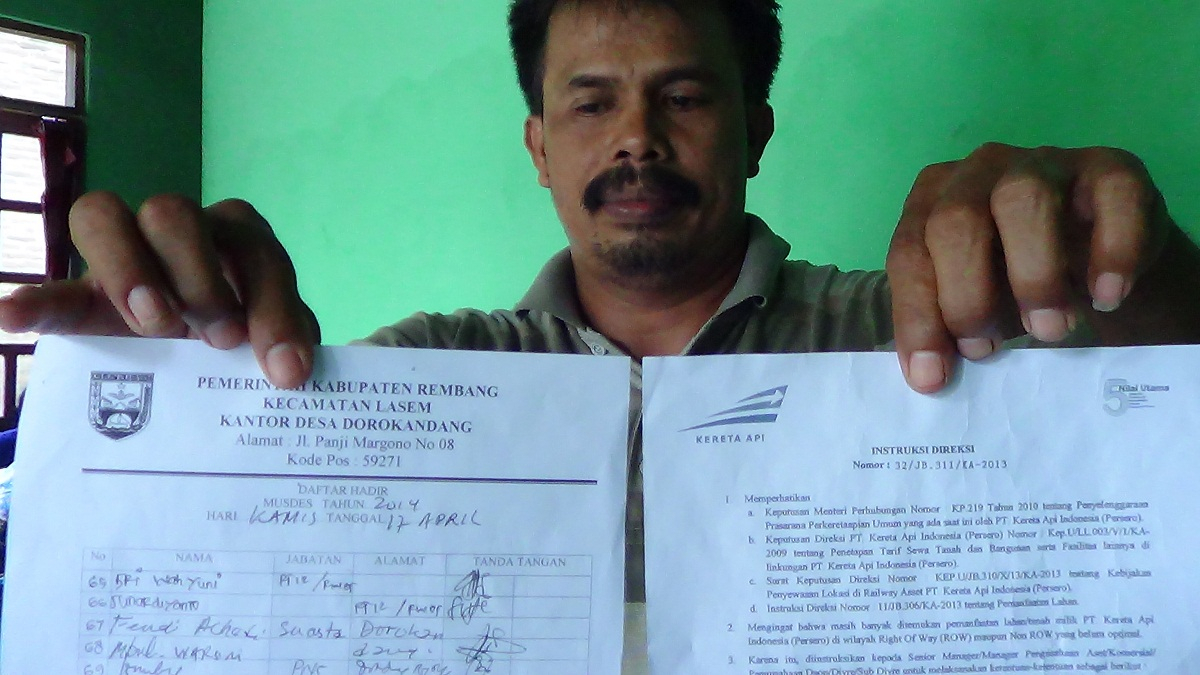 PEMERINTAH KABUPATEN REMBANG
KECAMATAN LASEM
KANTOR DESA DOROKANDANG
Alamat : Jl. Panji Margono No 08
Kode Pos : 59271
DAFTAR HADIR
MUSDES TAHUN 2014
HARI KAMIS TANGGAL 17 APRIL
No NAMA JABATAN ALAMAT TANDA TANGAN
65 Sri Wahyuni
66 Sunardiyanto
67
68
69
KERETA API
5 Nilai Utama
INSTRUKSI DIREKSI
Nomor : 32/JB.311/KA-2013
1 Memperhatikan :
a. Keputusan Menteri Perhubungan Nomor KP.219 Tahun 2010 tentang Penyelenggaraan
Prasarana Perkeretaapian Umum yang ada saat ini oleh PT. Kereta Api Indonesia (Persero).
b. Keputusan Direksi PT. Kereta Api Indonesia (Persero) Nomor : Kep.U/LL.003/V/1/KA-
2009 tentang Penetapan Tarif Sewa Tanah dan Bangunan serta Fasilitas lainnya di
linkungan PT. Kereta Api Indonesia (Persero).
c. Surat Keputusan Direksi Nomor KEP.U/JB.310/X/13/KA-2013 tentang Kebijakan
Penyewaan Lokasi di Railway Asset PT. Kereta Api Indonesia (Persero).
d. Instruksi Direksi Nomor 11/JB.306/KA-2013 tentang Pemanfaatan Lahan.
2. Mengingat bahwa masih banyak ditemukan pemanfaatan lahan/tanah milik PT. Kereta Api
Indonesia (Persero) di wilayah Right Of Way (ROW) maupun Non ROW yang belum optimal.
3. Karena itu, diinstruksikan kepada Senior Manager/Manager Pengusahaan Aset/Komersial/
Perusahaan Daop/Divre/Sub Divre untuk melaksanakan ketentuan-ketentuan sebagai berikut :